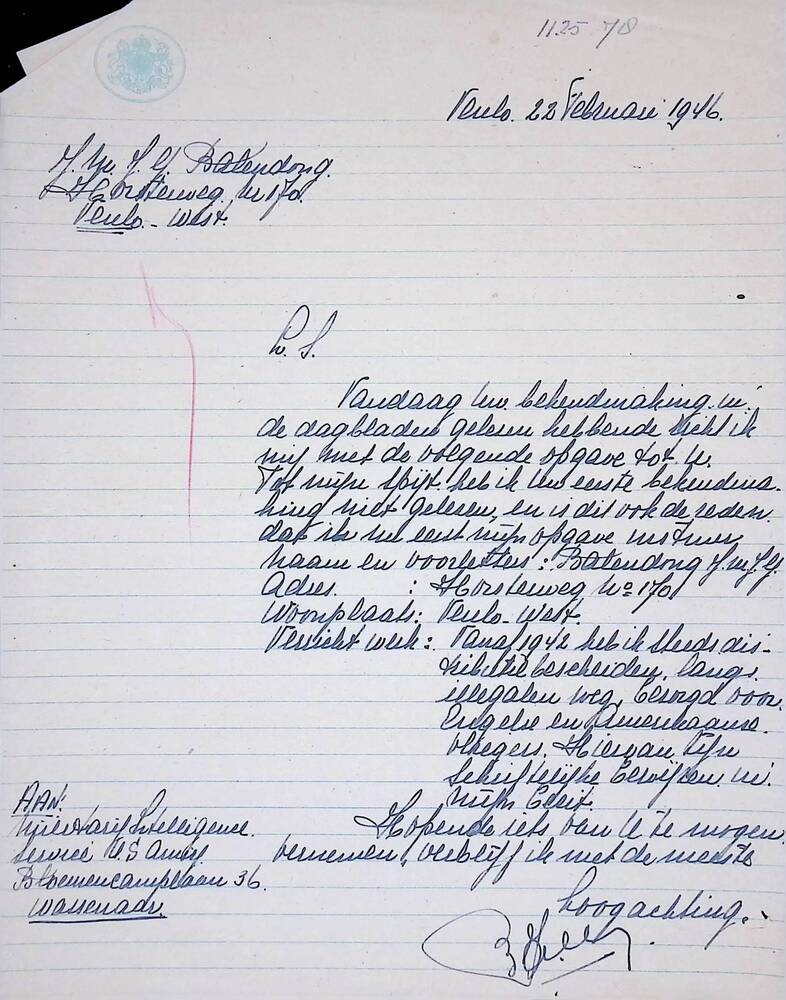 11.25 78
Venlo. 22 Februari 1946.
J. M. J. G. Batendong.
Horsterweg Nr 170.
Venlo - West.
L. S.
Vandaag Uw. bekendmaking. in.
de dagbladen gelezen hebbende richt ik
mij met de volgende opgave tot U.
Tot mijn spijt. heb ik Uw eerste bekendma-
king niet gelezen, en is dit ook de reden.
dat ik nu eerst mijn opgave
naam en voorletters: Batendong J. M. J. G.
Adres. : Horsterweg No 170
Woonplaats: Venlo - West.
Verricht werk: Vanaf 1942 heb ik steeds dis-
tributiebescheiden, langs.
illegalen weg, bezorgd voor.
Engelse en Amerikaanse.
vliegers. Hiervan zijn
schriftelijke bewijzen in.
mijn bezit.
Hopende iets van U te mogen
vernemen, verblijf ik met de meeste
hoogachting.
AAN:
Intelligence.
Service U.S Army
Bloemcamplaan 36.
Wassenaar.